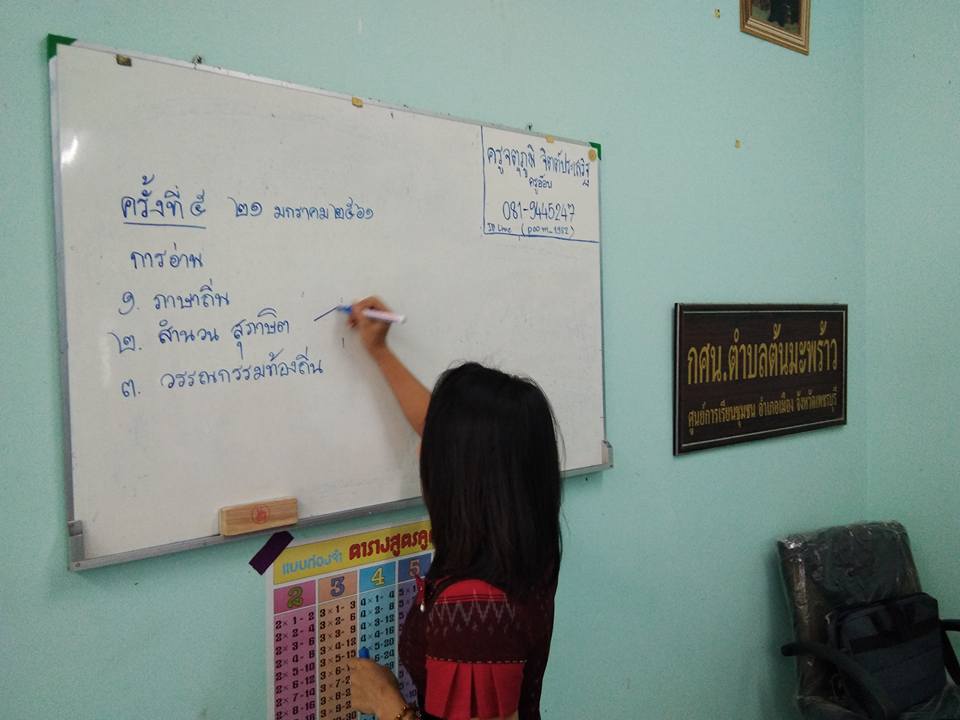 ครั้งที่ ๕ ๒๑ มกราคม ๒๕๖๑
การอ่าน
๑. ภาษาถิ่น
๒. สำนวน สุภาษิต
๓. วรรณกรรมท้องถิ่น
ครูจตุภูมิ จิตต์ประเสริฐ
ครูอ๊อบ
081-9445247
ID Line (poom_1982)
กศน.ตำบลต้นมะพร้าว
ศูนย์การเรียนชุมชน อำเภอเมือง จังหวัดเพชรบุรี
แบบท่องจำ ตารางสูตรคูณ
2 3 4 5
2 × 1 - 2 3 × 1 - 3 4 × 1 - 4
2 × 2 - 4 3 × 2 - 6 4 × 2 - 8
2 × 3 - 6 3 × 3 - 9
2 × 4 - 8 3 × 4 - 12
2 × 5 - 10 3 × 5 - 15
2 × 6 - 12
2 × 7 - 14
2 × 8 - 16